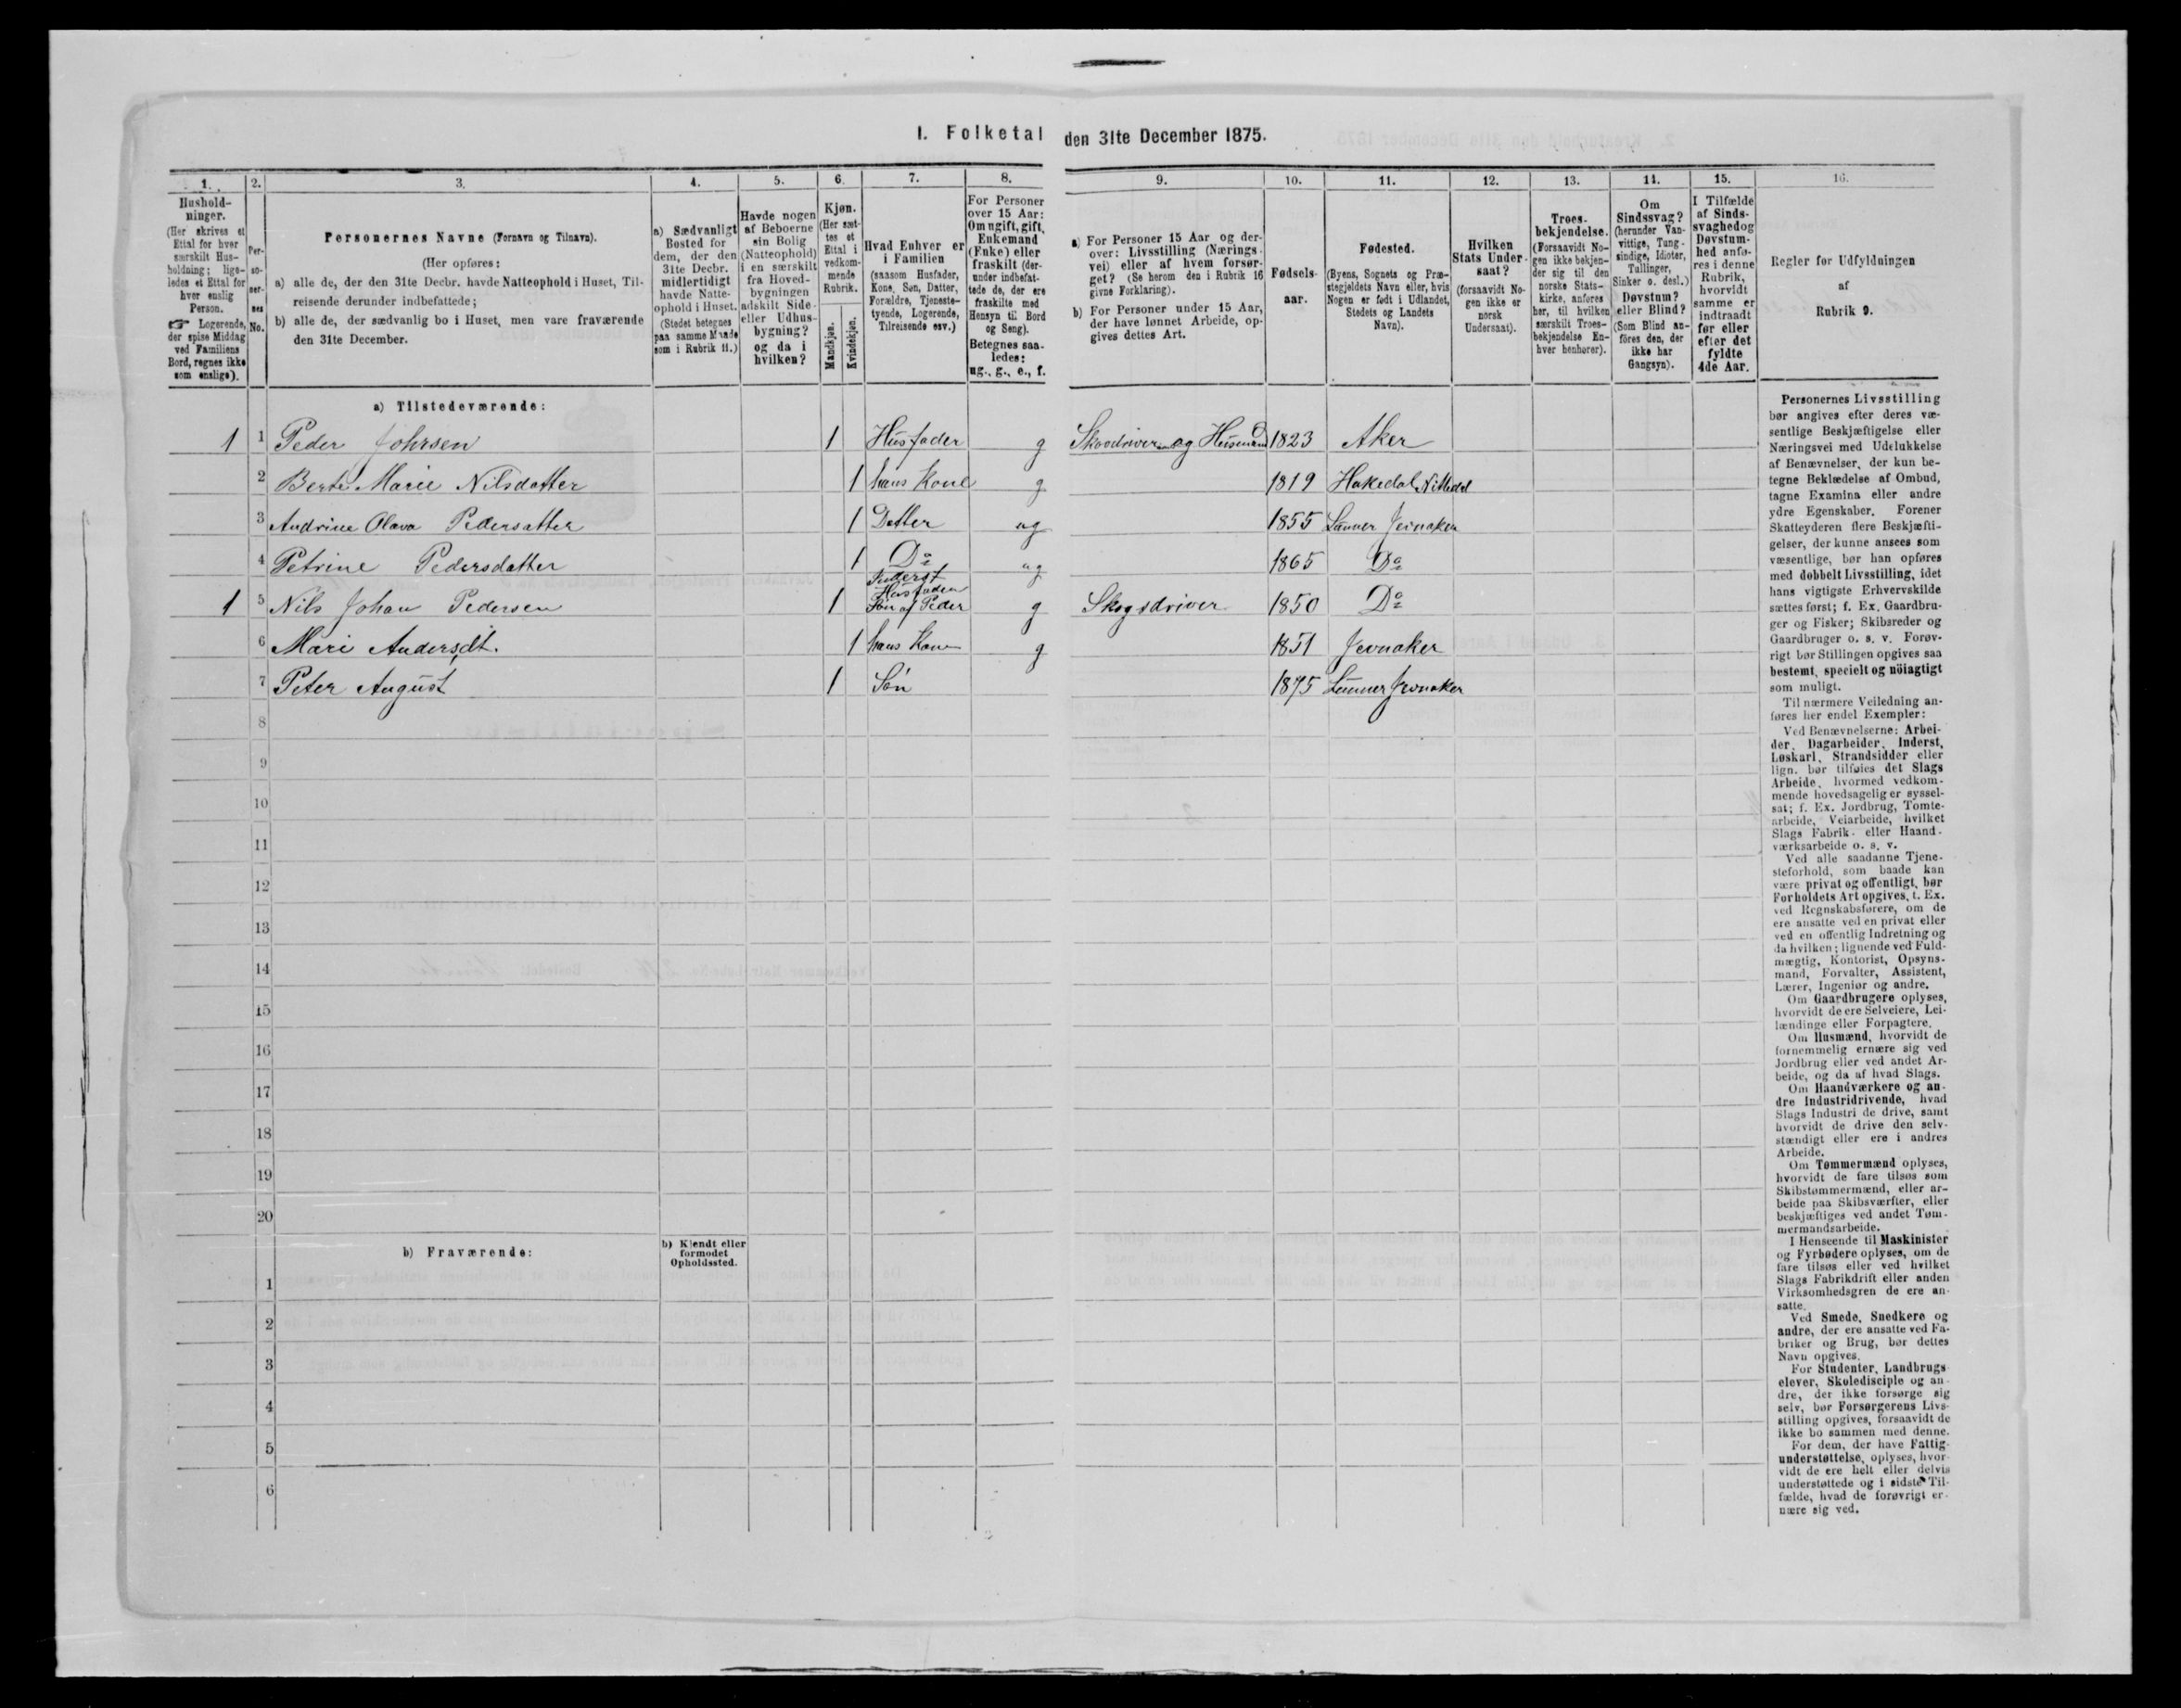 1. Folketal den 31te December 1875.
1. 2. 3. 4. 5. 6. 7. 8. 9. 10. 11. 12. 13. 14. 15. 16.
Hushold-
ninger.
(Her skrives et
Ettal for hver
særskilt Hus-
holdning; lige-
ledes et Ettal for
hver enslig
Person.
☞ Logerende,
der spise Middag
ved Familiens
Bord, regnes ikke
som enslige).
Per-
so-
ner-
nes
No.
Personernes Navne (Fornavn og Tilnavn).
(Her opføres:
a) alle de, der den 31te Decbr. havde Natteophold i Huset, Til-
reisende derunder indbefattede;
b) alle de, der sædvanlig bo i Huset, men vare fraværende
den 31te December.
a) Sædvanligt
Bosted for
dem, der den
31te Decbr.
midlertidigt
havde Natte-
ophold i Huset.
(Stedet betegnes
paa samme Maade
som i Rubrik 11.)
Havde nogen
af Beboerne
sin Bolig
(Natteophold)
i en særskilt
fra Hoved-
bygningen
adskilt Side-
eller Udhus-
bygning?
og da i
hvilken?
Kjøn.
(Her sæt-
tes et
Ettal i
vedkom-
mende
Rubrik.
Mandkjøn.
Kvindekjøn.
Hvad Enhver er
i Familien
(saasom Husfader,
Kone, Søn, Datter,
Forældre, Tjeneste-
tyende, Logerende,
Tilreisende osv.)
For Personer
over 15 Aar:
Om ugift, gift,
Enkemand
(Enke) eller
fraskilt (der-
under indbefat-
tede de, der ere
fraskilte med
Hensyn til Bord
og Seng).
Betegnes saa-
ledes:
ug., g., e., f.
a) For Personer 15 Aar og der-
over: Livsstilling (Nærings-
vei) eller af hvem forsør-
get? (Se herom den i Rubrik 16
givne Forklaring).
b) For Personer under 15 Aar,
der have lønnet Arbeide, op-
gives dettes Art.
Fødsels-
aar.
Fødested.
(Byens, Sognets og Præ-
stegjeldets Navn eller, hvis
Nogen er født i Udlandet,
Stedets og Landets
Navn).
Hvilken
Stats Under-
saat?
(forsaavidt No-
gen ikke er
norsk
Undersaat).
Troes-
bekjendelse.
(Forsaavidt No-
gen ikke bekjen-
der sig til den
norske Stats-
kirke, anføres
her, til hvilken
særskilt Troes-
bekjendelse En-
hver henhører).
Om
Sindssvag?
(herunder Van-
vittige, Tung-
sindige, Idioter,
Tullinger,
Sinker o. desl.)
Døvstum?
eller Blind?
(Som Blind an-
føres den, der
ikke har
Gangsyn).
I Tilfælde
af Sinds-
svaghed og
Døvstum-
hed anfø-
res i denne
Rubrik,
hvorvidt
samme er
indtraadt
før eller
efter det
fyldte
4de Aar.
Regler for Udfyldningen
af
Rubrik 9.
a) Tilstedeværende:
1 1 Peder Johrsen 1 Husfader g Skovdriver og Husmand 1823 Aker
2 Berte Marie Nilsdatter 1 hans Kone g 1819 Hakedal Nittedal
3 Andrine Olava Pedersatter 1 Datter ug 1855 Lunner Jevnaker
4 Petrine Pedersdatter 1 Do ug 1865 Do
Inderst
Husfader
1 5 Nils Johan Pedersen 1 Søn af Peder g Skogsdriver 1850 Do
6 Mari Andersdt. 1 hans Kone g 1851 Jevnaker
7 Peter August 1 Søn 1875 Lunner Jevnaker
8
9
10
11
12
13
14
15
16
17
18
19
20
b) Fraværende:
b) Kjendt eller
formodet
Opholdssted.
1
2
3
4
5
6
Personernes Livsstilling
bør angives efter deres væ-
sentlige Beskjæftigelse eller
Næringsvei med Udelukkelse
af Benævnelser, der kun be-
tegne Beklædelse af Ombud,
tagne Examina eller andre
ydre Egenskaber. Forener
Skatteyderen flere Beskjæfti-
gelser, der kunne ansees som
væsentlige, bør han opføres
med dobbelt Livsstilling, idet
hans vigtigste Erhvervskilde
sættes først; f. Ex. Gaardbru-
ger og Fisker; Skibsreder og
Gaardbruger o. s. v. Forøv-
rigt bør Stillingen opgives saa
bestemt, specielt og nöiagtigt
som muligt.
Til nærmere Veiledning an-
føres her endel Exempler:
Ved Benævnelserne: Arbei-
der, Dagarbeider, Inderst,
Løskarl, Strandsidder eller
lign. bør tilføies det Slags
Arbeide, hvormed vedkom-
mende hovedsagelig er syssel-
sat; f. Ex. Jordbrug, Tomte-
arbeide, Veiarbeide, hvilket
Slags Fabrik- eller Haand-
værksarbeide o. s. v.
Ved alle saadanne Tjene-
steforhold, som baade kan
være privat og offentligt, bør
Forholdets Art opgives, t. Ex.
ved Regnskabsførere, om de
ere ansatte ved en privat eller
ved en offentlig Indretning og
da hvilken; lignende ved Fuld-
mægtig, Kontorist, Opsyns-
mand, Forvalter, Assistent,
Lærer, Ingeniør og andre.
Om Gaardbrugere oplyses,
hvorvidt de ere Selveiere, Lei-
lændinge eller Forpagtere.
Om Husmænd, hvorvidt de
fornemmelig ernære sig ved
Jordbrug eller ved andet Ar-
beide, og da af hvad Slags.
Om Haandværkere og an-
dre Industridrivende, hvad
Slags Industri de drive, samt
hvorvidt de drive den selv-
stændigt eller ere i andres
Arbeide.
Om Tømmermænd oplyses,
hvorvidt de fare tilsøs som
Skibstømmermænd, eller ar-
beide paa Skibsværfter, eller
beskjæftiges ved andet Tøm-
mermandsarbeide.
I Henseende til Maskinister
og Fyrbødere oplyses, om de
fare tilsøs eller ved hvilket
Slags Fabrikdrift eller anden
Virksomhedsgren de ere an-
satte.
Ved Smede, Snedkere og
andre, der ere ansatte ved Fa-
briker og Brug, bør dettes
Navn opgives.
For Studenter, Landbrugs-
elever, Skoledisciple og an-
dre, der ikke forsørge sig
selv, bør Forsørgerens Livs-
stilling opgives, forsaavidt de
ikke bo sammen med denne.
For dem, der have Fattig-
understøttelse, oplyses, hvor-
vidt de ere helt eller delvis
understøttede og i sidste Til-
fælde, hvad de forøvrigt er-
nære sig ved.